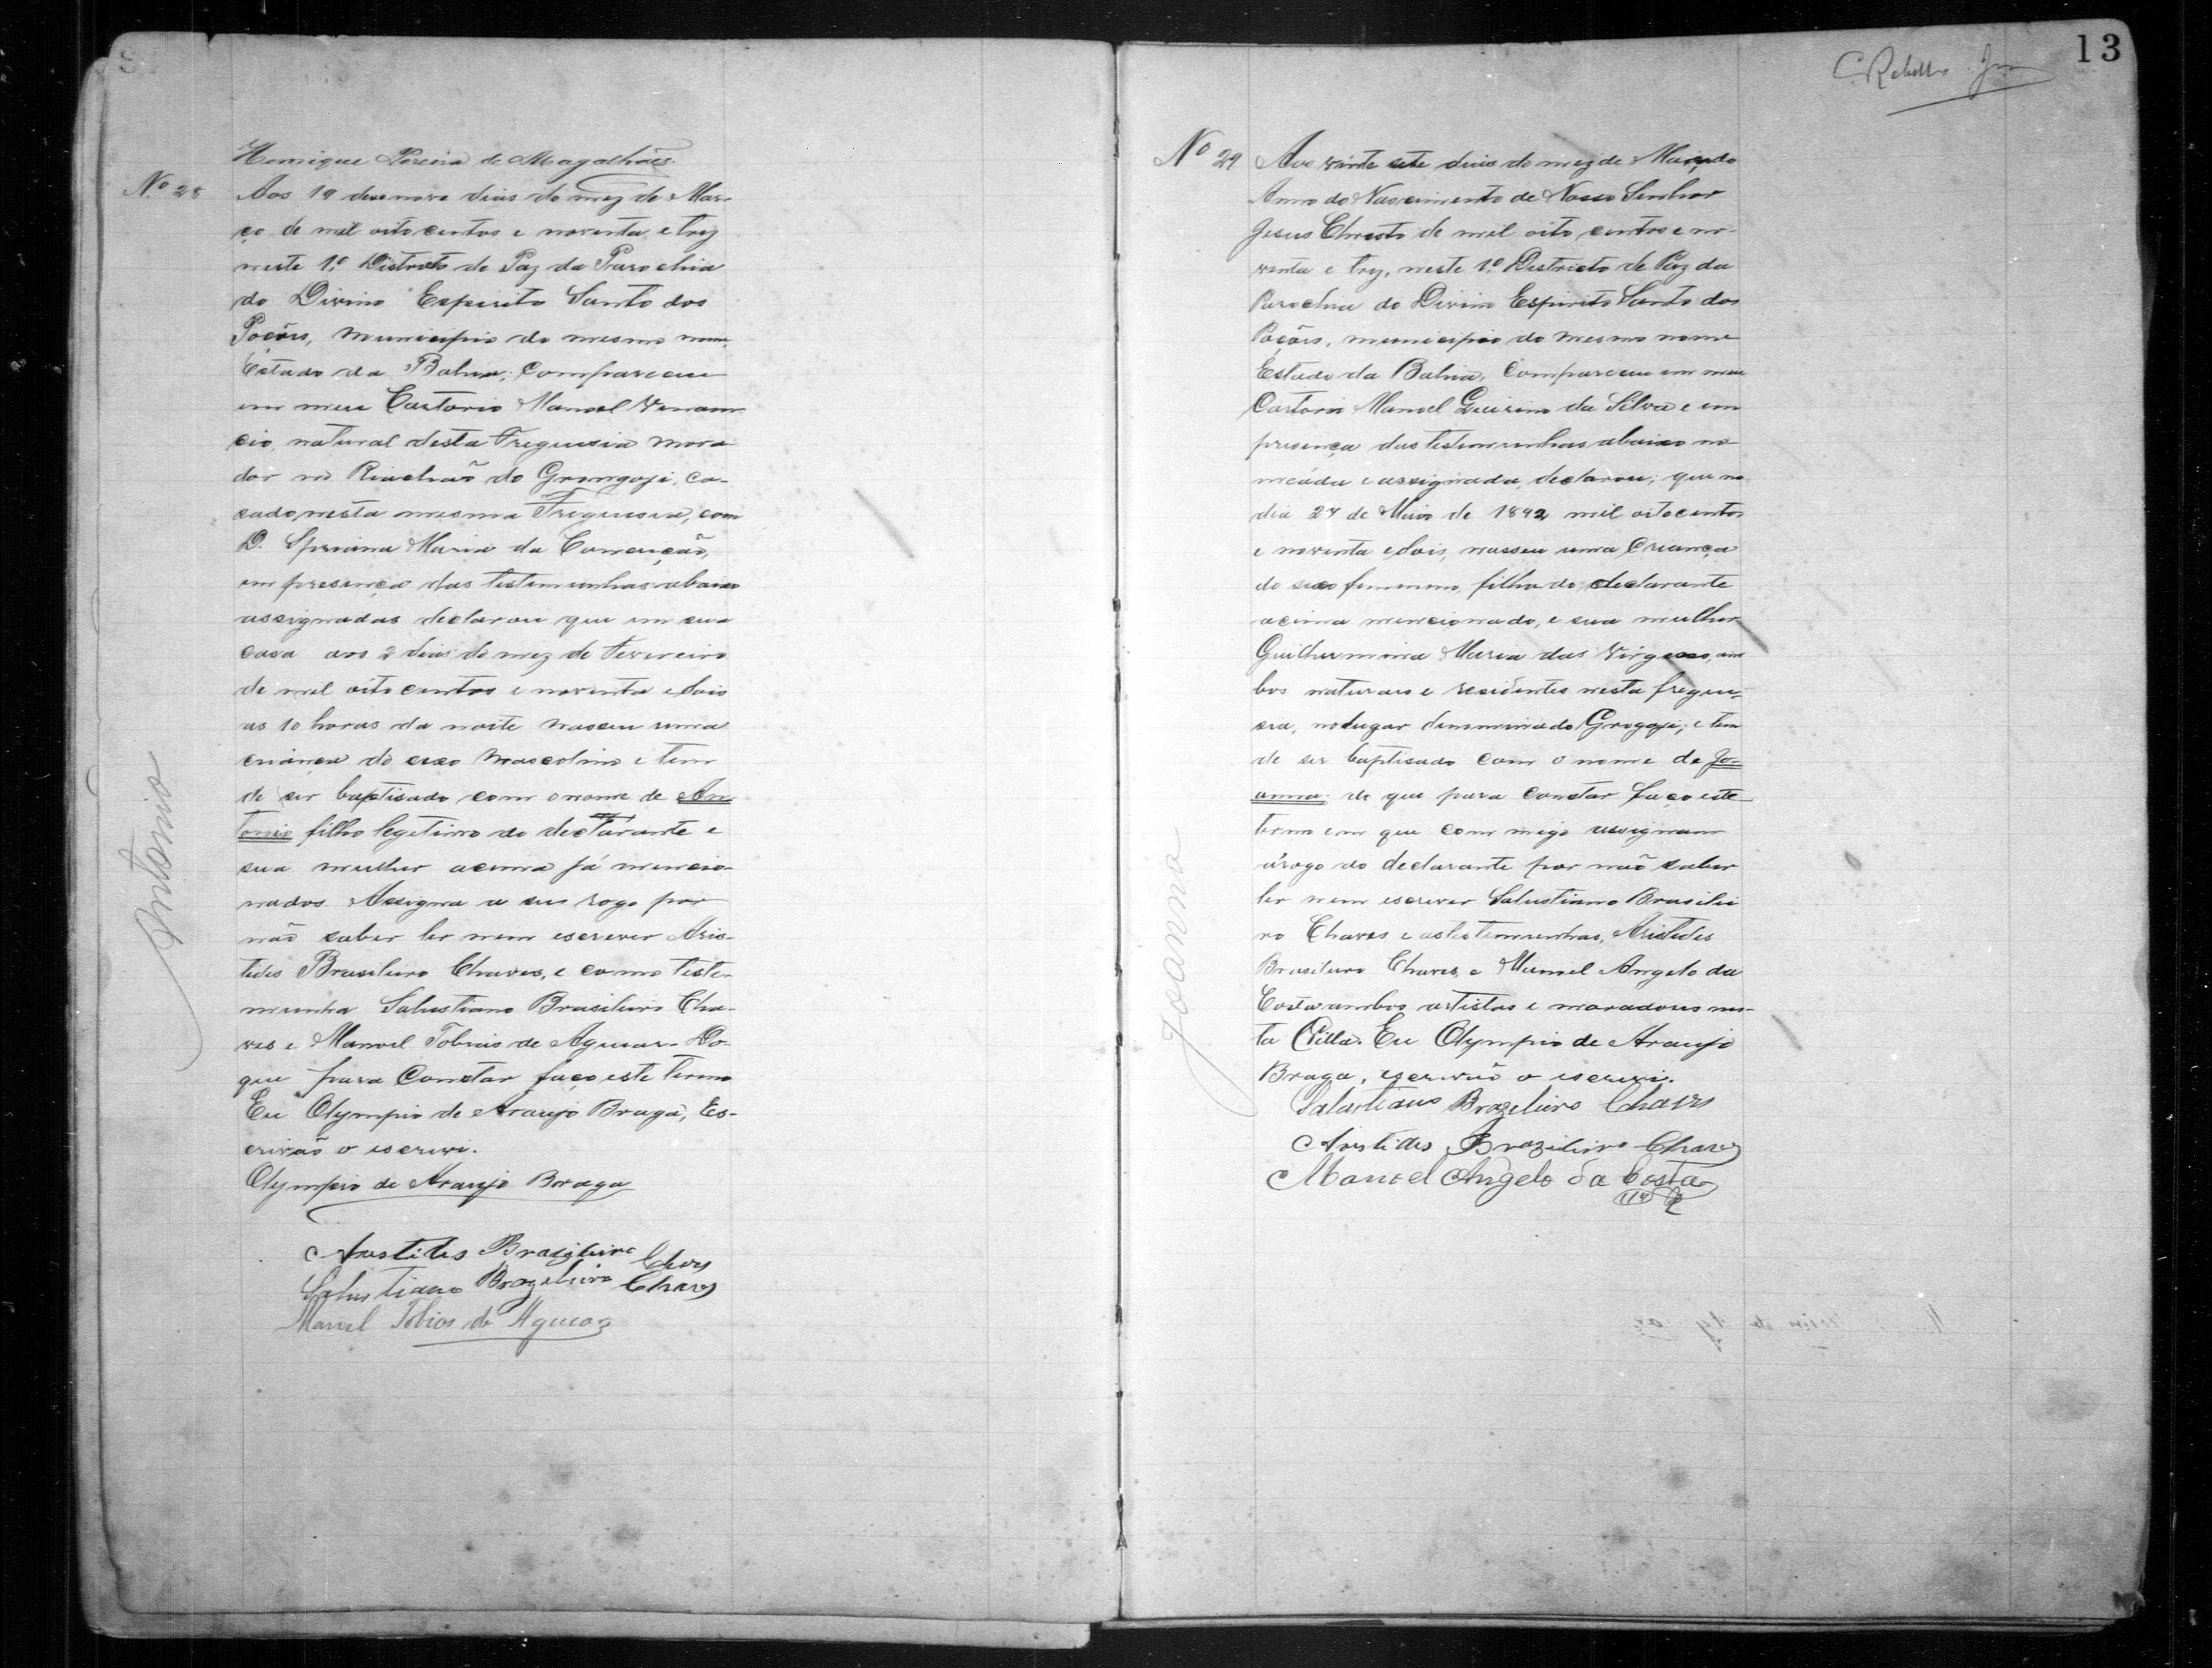 Henrique Pereira de Magalhães.
Nº 28
Aos 19 desenove dias do mez de Mar-
ço de mil oito centos e noventa e trez
neste 1º Districto de Paz da Parochia
do Divino Espirito Santo dos
Poções, Municipio do mesmo nome,
Estado da Bahia; Compareceu
em meu Cartorio Manoel Venan
cio, natural desta Freguesia mora
dor no Riachão do Grongogi, ca-
sado, nesta mesma Freguesia, com
D. Maria da Conceição,
em presença das testemunhas abaixo
assignadas declarou que em sua
casa aos 2 dias do mez de Fevereiro
de mil oito centos e noventa e dois
as 10 horas da noite nasceu uma
criança do sexo Mascolino e tem
de ser baptisado com o nome de An
tonio filho legitimo do declarante e
sua mulher acima já mencio-
nados. Assigna a seu rogo por
não saber ler nem escrever Aris-
tides Brasileiro Chaves, e como teste-
munha Salustiano Brasileiro Cha-
ves e Manoel Tobias de Aguiar. Do
que para Constar faço este termo
Eu Olympio de Araujo Braga, Es-
crivão o escrevi.
Olympio de Araujo Braga
Aristides Brazileiro Chaves
Salustiano Brazeleiro Chaves
Manoel Tobias de Aguiar
Antonio
13
C. Rebello
Nº 29
Aos vinte sete dias do mez de Março do
Anno do Nascimento de Nosso Senhor
Jesus Christo de mil oito centos e no-
venta e trez, neste 1º Districto de Paz da
Parochia do Divino Espirito Santo dos
Poções, municipio do mesmo nome
Estado da Bahia, Compareceu em meu
Cartorio Manoel Quirino da Silva e em
presença das testemunhas abaixo no
meada e assignada, declarou; que no
dia 27 de Maio de 1892 mil oitocentos
e noventa e dois, nasceu uma Criança
do sexo feminino, filha do declarante
acima mencionado, e sua mulher
Guilhermina Maria das Virgens, am
bos naturais e residentes nesta fregue-
sia, no lugar denominado Grogogi; e tem
de ser baptisado com o nome de Jo-
anna; de que para constar faço este
termo em que com migo assignam
á rogo do declarante por não saber
ler nem escrever Salustiano Brasilei
ro Chaves e as testemunhas, Aristides
Brasileiro Chaves e Manoel Angelo da
Costa ambos artistas e moradores nes-
ta Villa. Eu Olympio de Araujo
Braga, escrivão o escrevi.
Salustiano Brazeleiro Chaves
Aristides Brazileiro Chaves
Manoel Angelo da Costa
Joanna